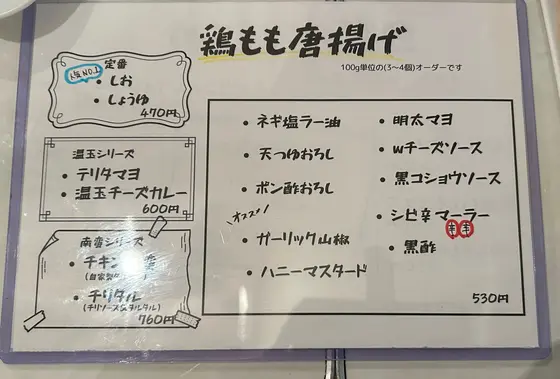 鶏もも唐揚げ
100g単位の(3〜4個)オーダーです
定番
人気NO.1
・しお
・しょうゆ
470円
温玉シリーズ
・テリタマヨ
・温玉チーズカレー
600円
南蛮シリーズ
・チキン
(自家製
・チリタル
(チリソース&タルタル)
760円
・ネギ塩ラー油
・天つゆおろし
・ポン酢おろし
オススメ!
・ガーリック山椒
・ハニーマスタード
・明太マヨ
・wチーズソース
・黒コショウソース
・シビ辛マーラー
・黒酢
530円